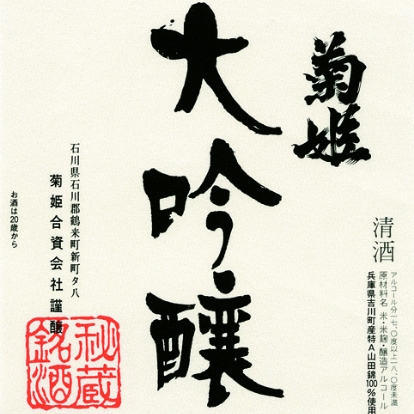 菊姫
大吟醸
清酒
アルコール分一七、〇度以上一八、〇度未満
原材料名 米・米麹・醸造アルコール
兵庫県吉川町産特A山田錦100%使用
石川県石川郡鶴来町新町タ八
菊姫合資会社謹醸
お酒は20歳から
秘蔵
銘酒